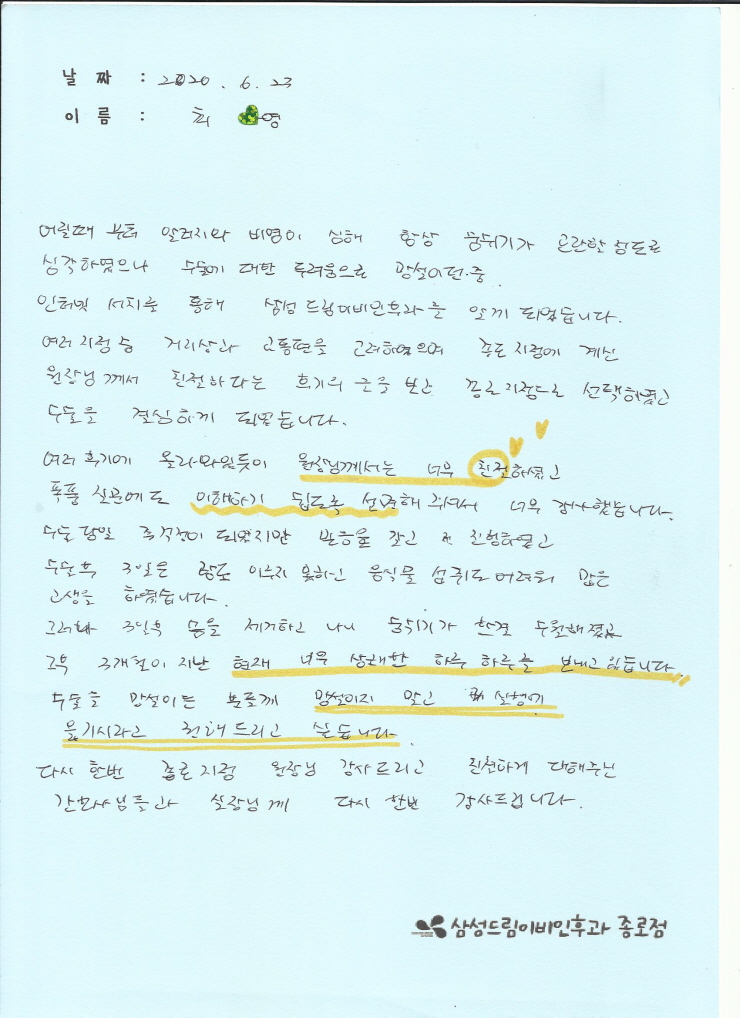 날 짜 : 2020 . 6 . 23
이 름 : 최 영
어릴때 부터 알러지와 비염이 심해 항상 숨쉬기가 곤란할 정도로
심각하였으나 수술에 대한 두려움으로 망설이던 중
인터넷 서치를 통해 삼성드림이비인후과를 알게 되었습니다.
여러 지점 중 거리상과 교통편을 고려하였으며 종로지점에 계신
원장님께서 친절하다는 후기의 글을 보고 종로지점으로 선택하였고
수술을 결심하게 되었습니다.
여러 후기에 올라와있듯이 원장님께서는 너무 친절하셨고
폭풍 질문에도 이해하기 쉽도록 설명해 주셔서 너무 감사했습니다.
수술 당일 걱정이 되었지만 갖고 진행하였고
수술후 3일은 잠도 이루지 못하고 음식물 섭취도 어려워 많은
고생을 하였습니다.
그러나 3일후 솜을 제거하고 나니 숨쉬기가 한결 수월해졌고
그후 3개월이 지난 현재 너무 상쾌한 하루 하루를 보내고 있습니다.
수술을 망설이는 분들께 망설이지 말고 꼭 실행에
옮기시라고 전해드리고 싶습니다.
다시 한번 종로지점 원장님 감사드리고 친절하게 대해주신
간호사님들과 실장님께 다시 한번 감사드립니다.
삼성드림이비인후과 종로점